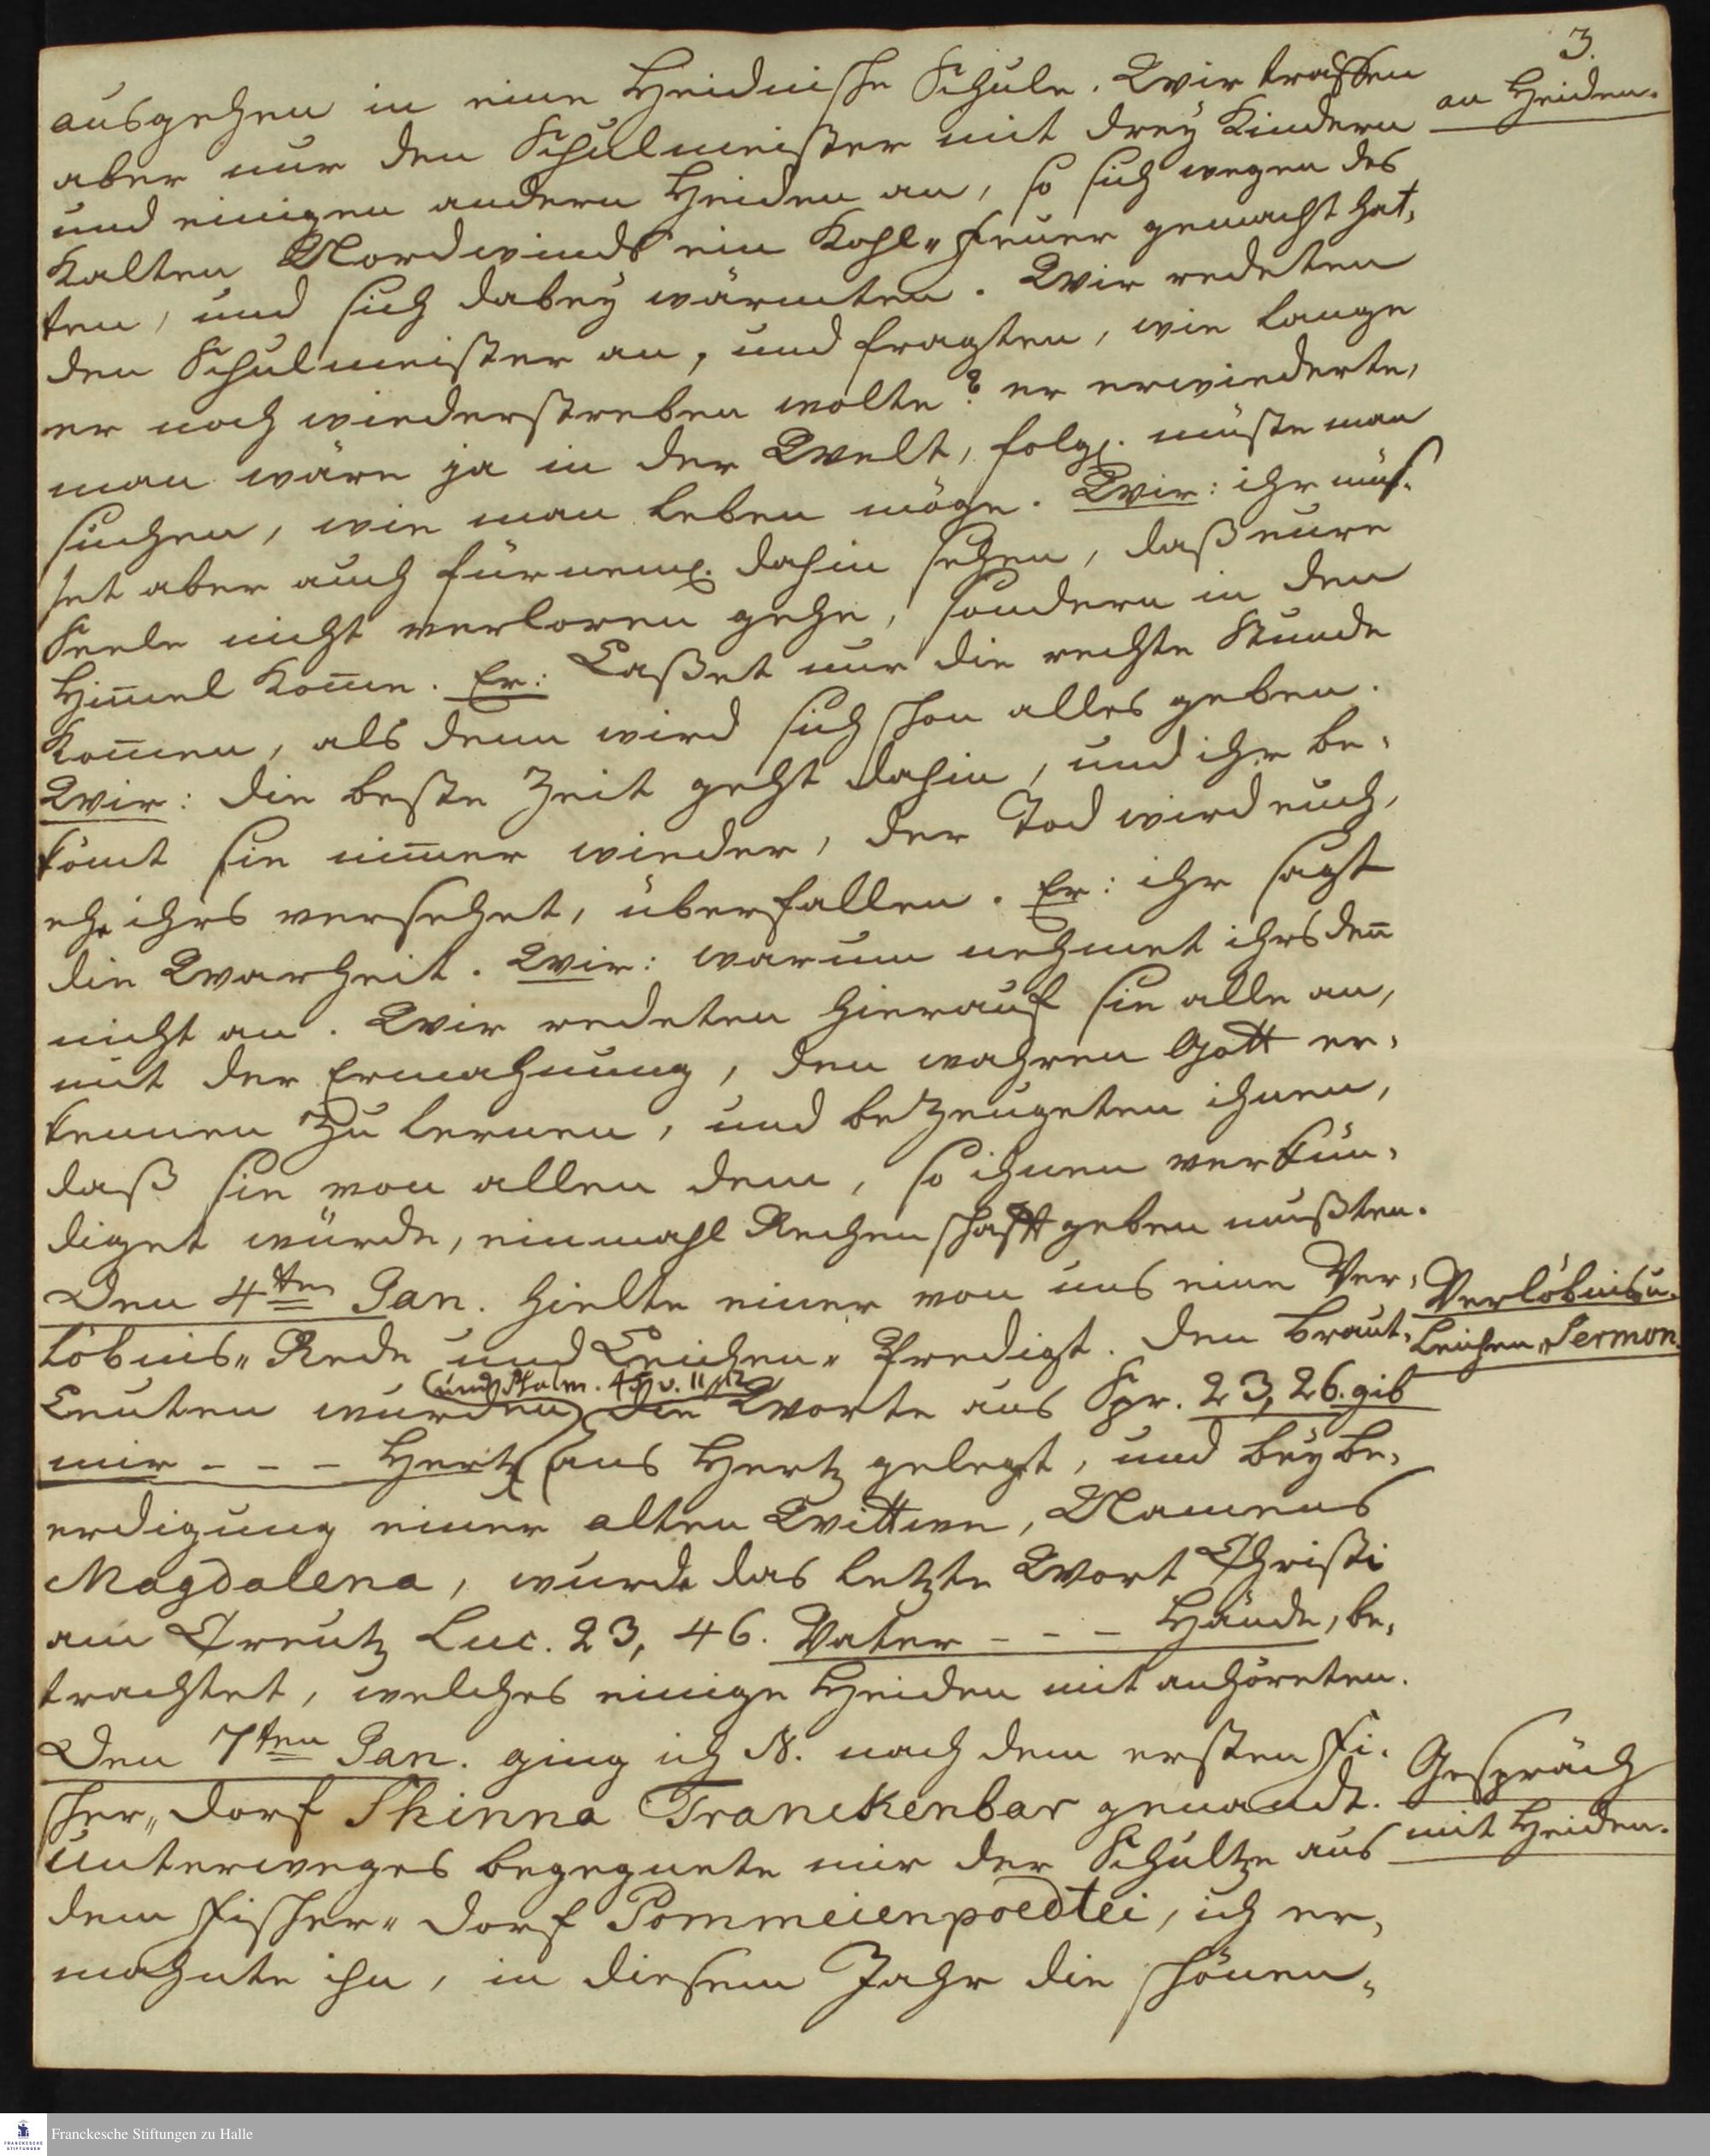 3.
ausgehen in eine Heidnische Schule. Wir traffen
an Heiden.
aber nur den Schulmeister mit drey Kindern
und einigen andern Heiden an, so sich wegen des
Kalten Nordwinds ein Kohl-feuer gemacht hat-
ten, und sich dabey wärmten. Wir redeten
den Schulmeister an, und fragten, wie lange
er noch wiederstreben wolte? er erwiederte,
man wäre ja in der Welt, folgl. müste man
suchen, wie man leben möge. Wir: ihr müs-
set aber auch fürneml. dahin sehen, daß eure
Seele nicht verloren gehe, sondern in den
Him̅el kom̅e. Er: Laßet nur die rechte Stunde
kom̅en, als denn wird sich schon alles geben.
Wir: die beste Zeit geht dahin, und ihr be-
kömt sie nim̅er wieder, der Tod wird euch,
ehe ihrs versehet, überfallen. Er: ihr sagt
die Warheit. Wir: warum nehmet ihrs den̅
nicht an. Wir redeten hierauf sie alle an,
mit der Ermahnung, den wahren Gott er-
kennen zu lernen, und bezeugeten ihnen,
daß sie von allen dem, so ihnen verkün-
diget würde, einmahl Rechenschafft geben mußten.
Den 4ten Jan. hielte einer von uns eine Ver-
Verlöbnis u.
löbnis-Rede und Leichen-Predigt. Den Braut-
Leichen-Sermon.
(und Psalm. 45, v. 11, 12)
Leuten wurden die Worte aus Spr. 23, 26. gib
mir - - - Hertz ans Hertz gelegt, und bey be-
erdigung einer alten Wittwe, Namens
Magdalena, wurde das letzte Wort Christi
am Creutz Luc. 23, 46. Vater - - - Hände, be-
trachtet, welches einige Heiden mit anhöreten.
Den 7ten Jan. ging ich N. nach dem ersten Fi-
Gespräch
scher-dorf Shinna Tranckenbar genandt.
mit Heiden.
Unterweges begegnete mir der Schultze aus
dem Fischer-dorf Pommeienpoedtei, ich er-
mahnte ihn, in diesem Jahr die schönen-
Franckesche Stiftungen zu Halle
FRANCKESCHE
STIFTUNGEN